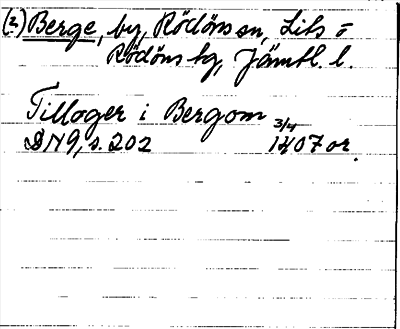 (2) Berge, by, Rödöns sn, Lits o
Rödöns tg, Jämtl. l.
Tilloger i Bergom 3/4
DN 9, s. 202 1407 or.